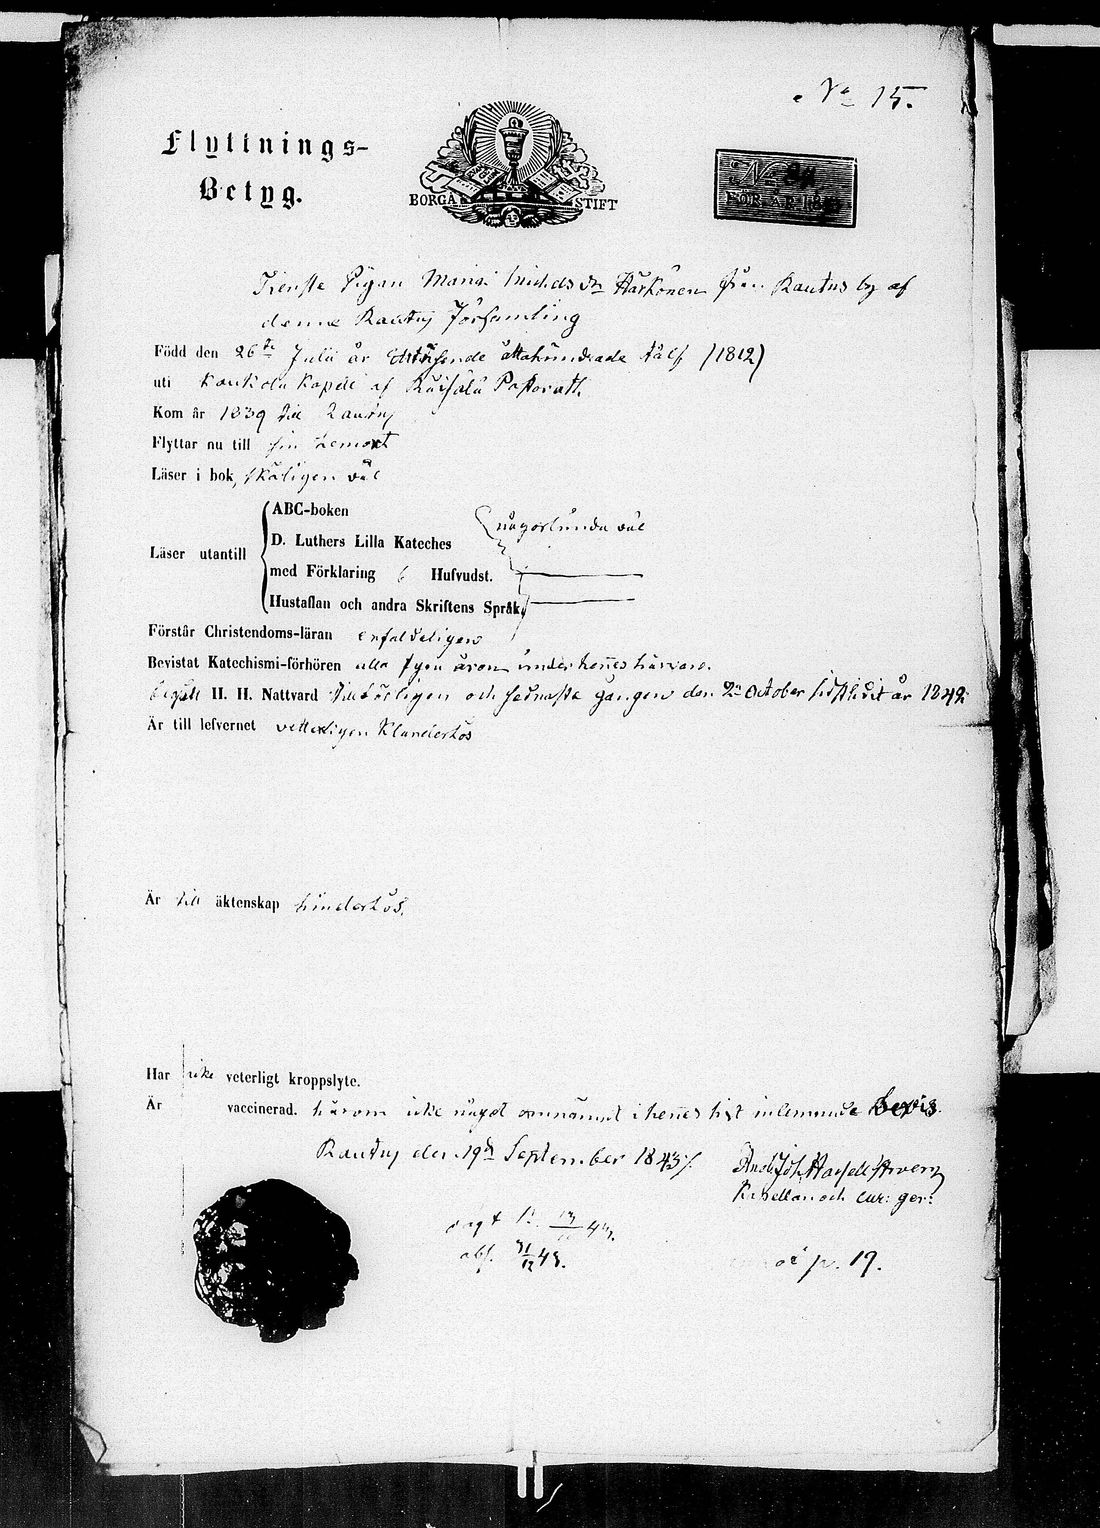 No 15.
Flyttnings-
Betyg.
BORGÅ STIFT
No 24.
FÖR ÅR 18
Tienste Pigan Maria Michelsdr Härkönen från Rautus by af
denna Rautus Församling
Född den 26te Julii år Ettusende åttahundrade tålf (1812)
uti Kaukola Kapell af Räisälä Pastoratt.
Kom år 1839 till Rautus
Flyttar nu till
Läser i bok, skäligen väl
Läser utantill
ABC-boken
D. Luthers Lilla Kateches någorlunda väl
med Förklaring 6 Hufvudst.
Hustaflan och andra Skriftens Språk
Förstår Christendoms-läran enfaldeligen
Bevistat Katechismi-förhören alla åren under hennes härvaro.
begått H. H. Nattvard och sednaste gången den 2dn October sistlidit år 1842
Är till lefvernet vetterligen klanderlös
Är till äktenskap hinderlös.
Har icke veterligt kroppslyte.
Är vaccinerad. härom icke något omnämnt i hennes hist inlemnade bevis.
Rautus den 19de September 1843
Joh.
Kapellan och cur: ger:
43.
abs. 31/12 43.
p. 19.